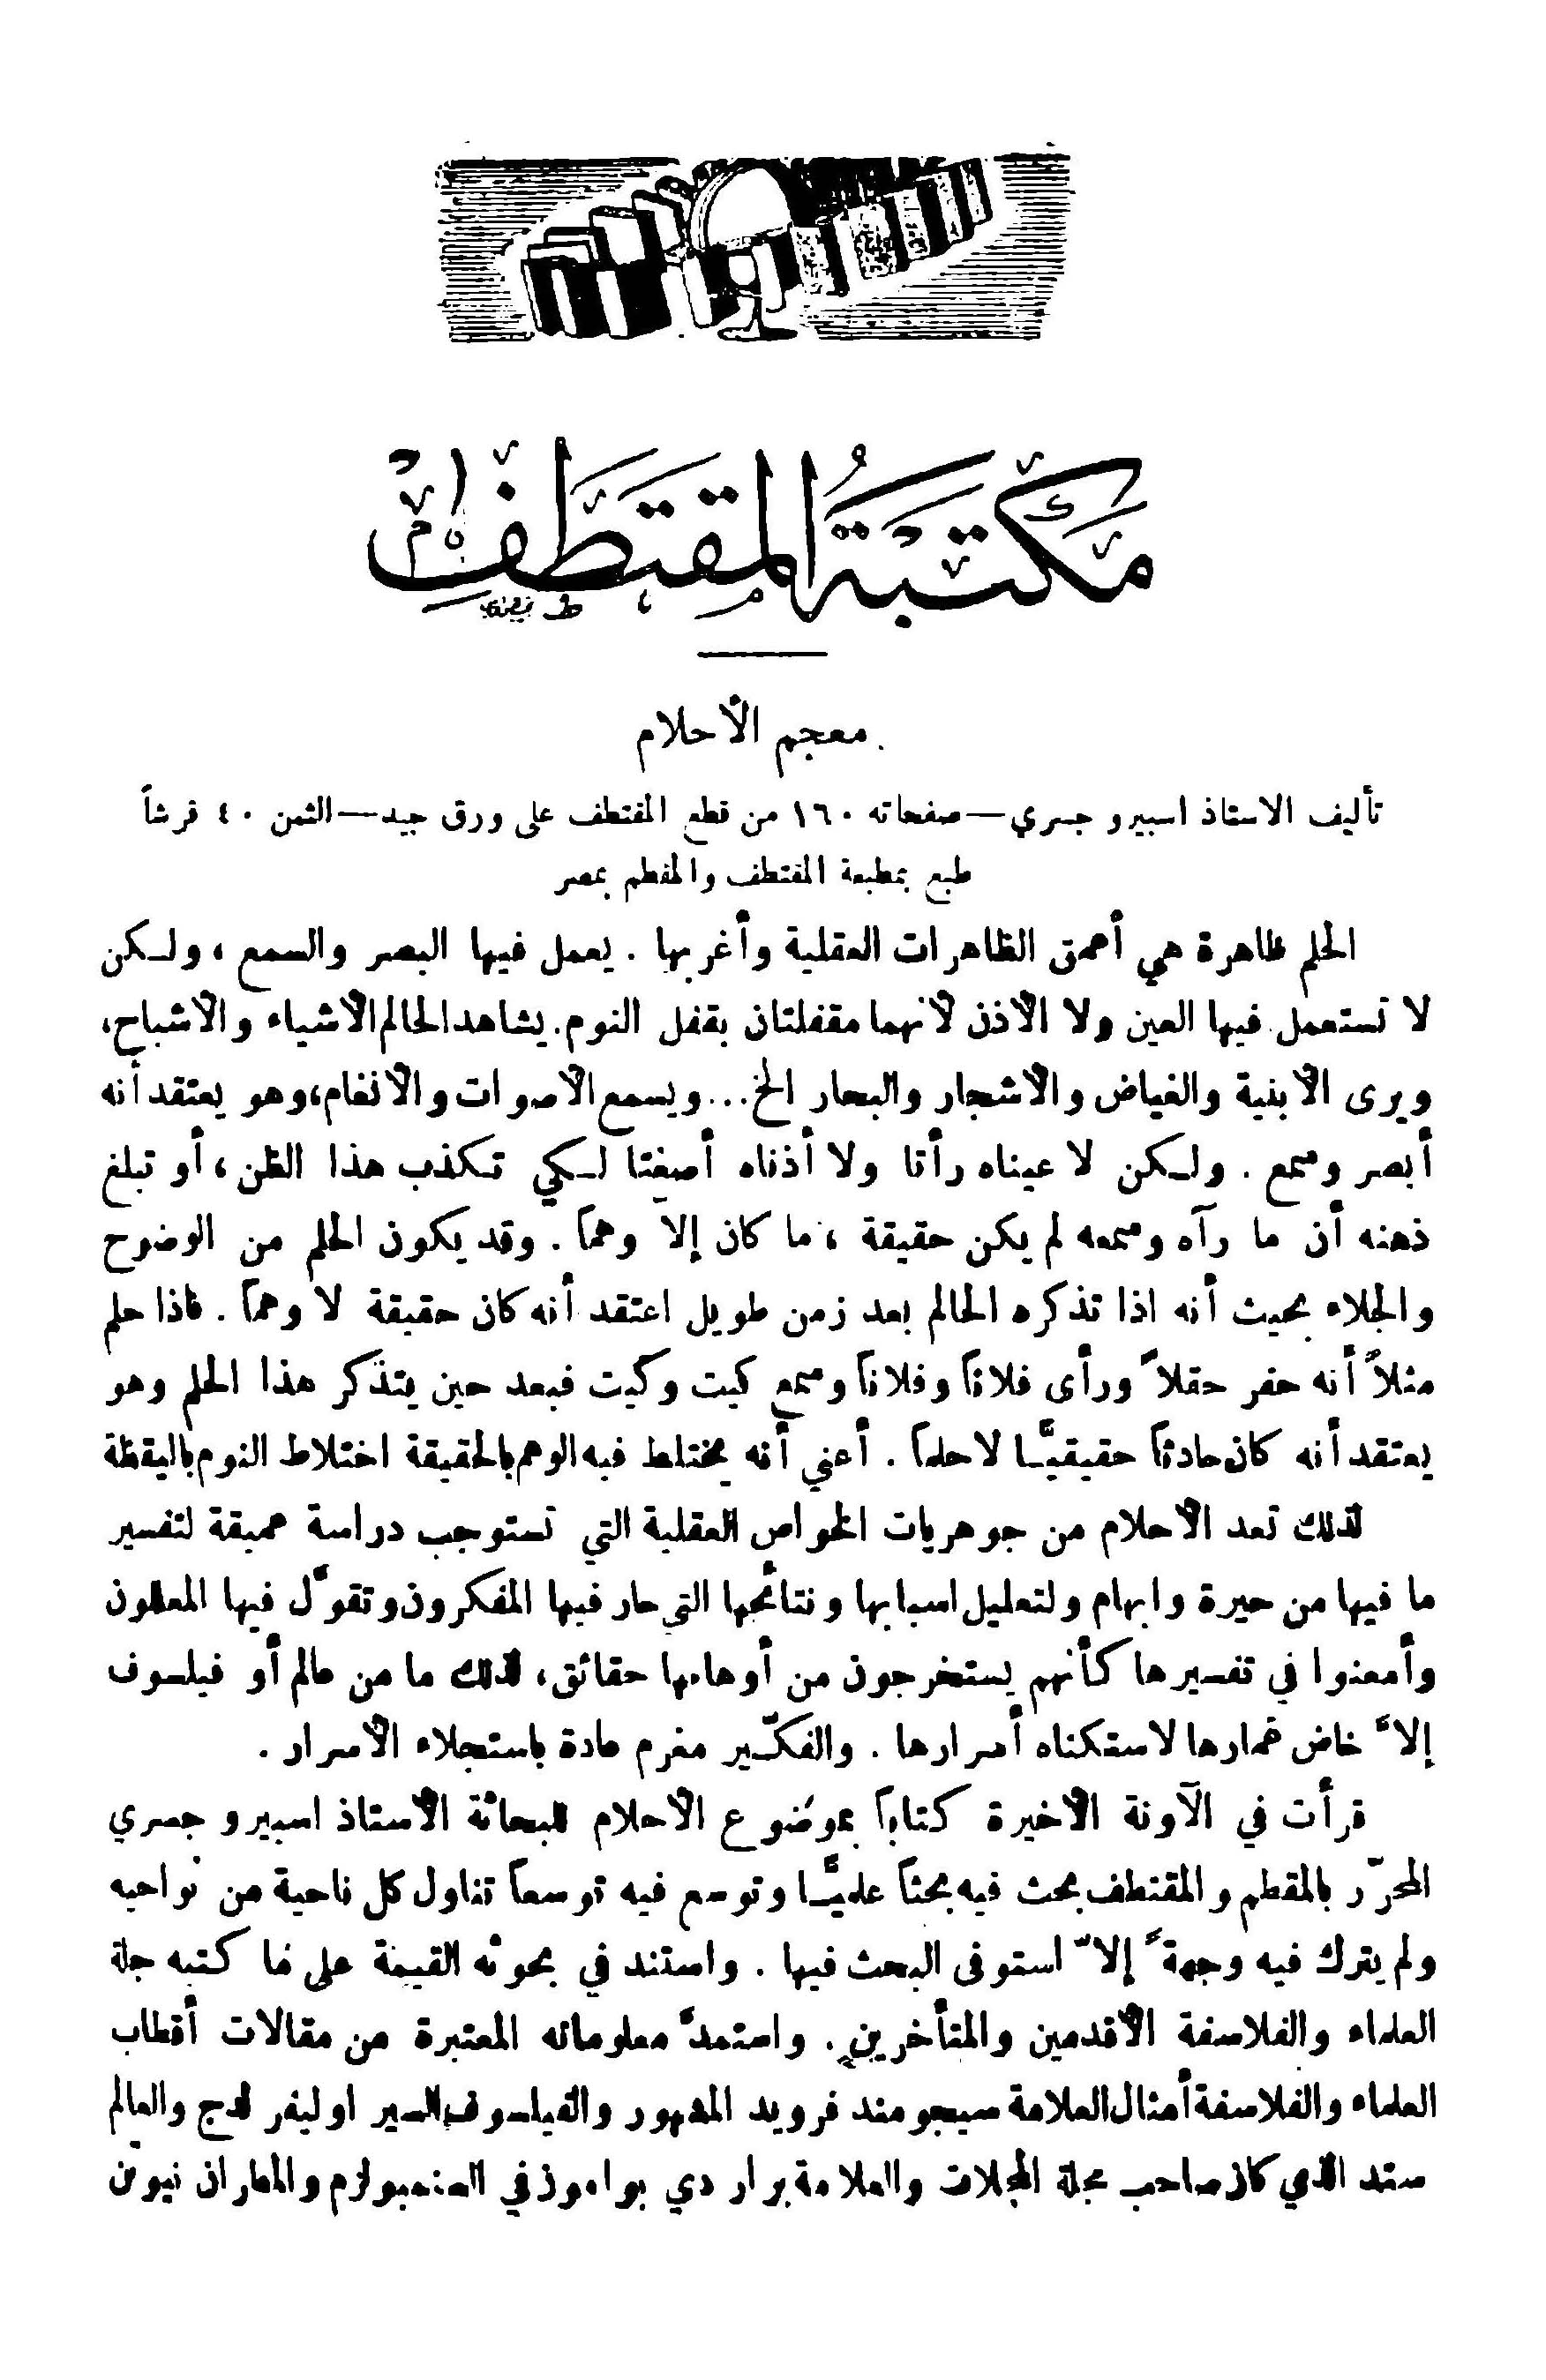 مَكتَبَةُ المُقتَطَفِ
معجم الأحلام
تأليف الاستاذ اسبيرو جسري — صفحاته ١٦٠ من قطع المقتطف على ورق جيد — الثمن ٤٠ قرشاً
طبع بمطبعة المقتطف والمقطم بمصر
الحلم ظاهرة هي أعمق الظاهرات العقلية وأغربها . يعمل فيها البصر والسمع ، ولكن
لا تستعمل فيها العين ولا الأذن لأنهما مقفلتان بقفل النوم . يشاهد الحالم الأشياء والأشباح،
ويرى الأبنية والغياض والأشجار والبحار الخ... ويسمع الأصوات والأنغام، وهو يعتقد أنه
أبصر وسمع . ولكن لا عيناه رأتا ولا أذناه أصغتا لكي تكذب هذا الظن ، أو تبلغ
ذهنه أن ما رآه وسمعه لم يكن حقيقة ، ما كان إلاّ وهماً . وقد يكون الحلم من الوضوح
والجلاء بحيث أنه اذا تذكره الحالم بعد زمن طويل اعتقد أنه كان حقيقة لا وهماً . فاذا حلم
مثلاً أنه حفر حقلاً ورأى فلاناً وفلاناً وسمع كيت وكيت فبعد حين يتذكر هذا الحلم وهو
يعتقد أنه كان حادثاً حقيقيًّا لا حلماً . أعني أنه يختلط فيه الوهم بالحقيقة اختلاط النوم باليقظة
لذلك تعد الأحلام من جوهريات الخواص العقلية التي تستوجب دراسة عميقة لتفسير
ما فيها من حيرة وابهام ولتعليل اسبابها ونتائجها التي حار فيها المفكرون وتقوّل فيها المعللون
وأمعنوا في تفسيرها كأنهم يستخرجون من أوهامها حقائق، لذلك ما من عالم أو فيلسوف
إلاّ خاض غمارها لاستكناه أسرارها . والفكّير مغرم عادة باستجلاء الأسرار .
قرأت في الآونة الأخيرة كتاباً بموضوع الأحلام للبحاثة الأستاذ اسبيرو جسري
المحرّر بالمقطم والمقتطف بحث فيه بحثاً علميًّا وتوسع فيه توسعاً تناول كل ناحية من نواحيه
ولم يترك فيه وجهة إلاّ استوفى البحث فيها . واستند في بحوثه القيمة على ما كتبه جلة
العلماء والفلاسفة الأقدمين والمتأخرين . واستمدّ معلوماته المعتبرة من مقالات أقطاب
العلماء والفلاسفة أمثال العلامة سيجومند فرويد المشهور والفيلسوف السير اوليفر لدج والعالم
ستد الذي كان صاحب مجلة المجلات والعلامة برار دي بوامون في السنمبولزم والمطران نيوتن